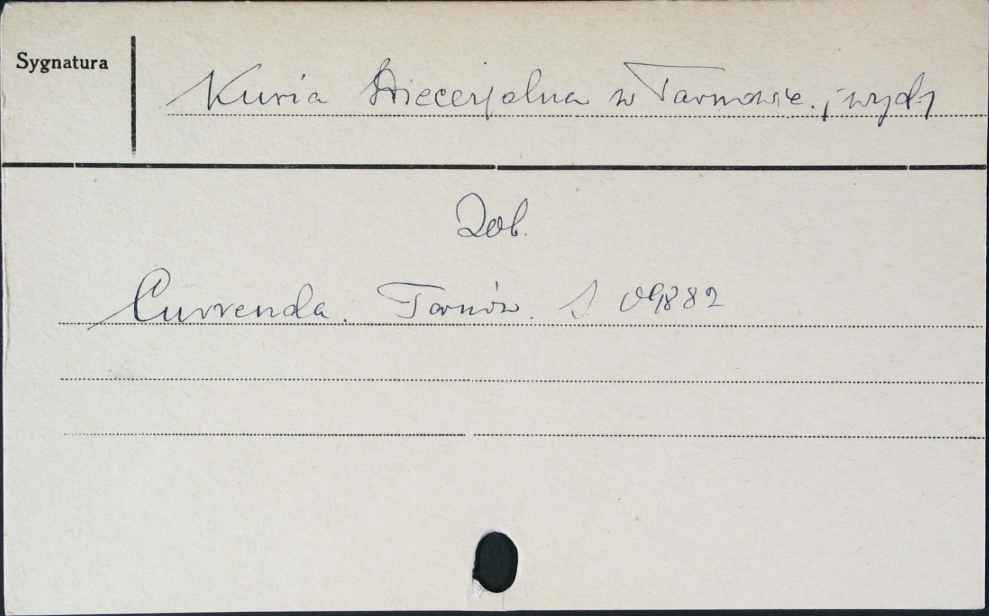 Sygnatura
Kuria Diecezjalna w Tarnowie. ; wyd.
Zob.
Currenda. Tarnów. S 09882